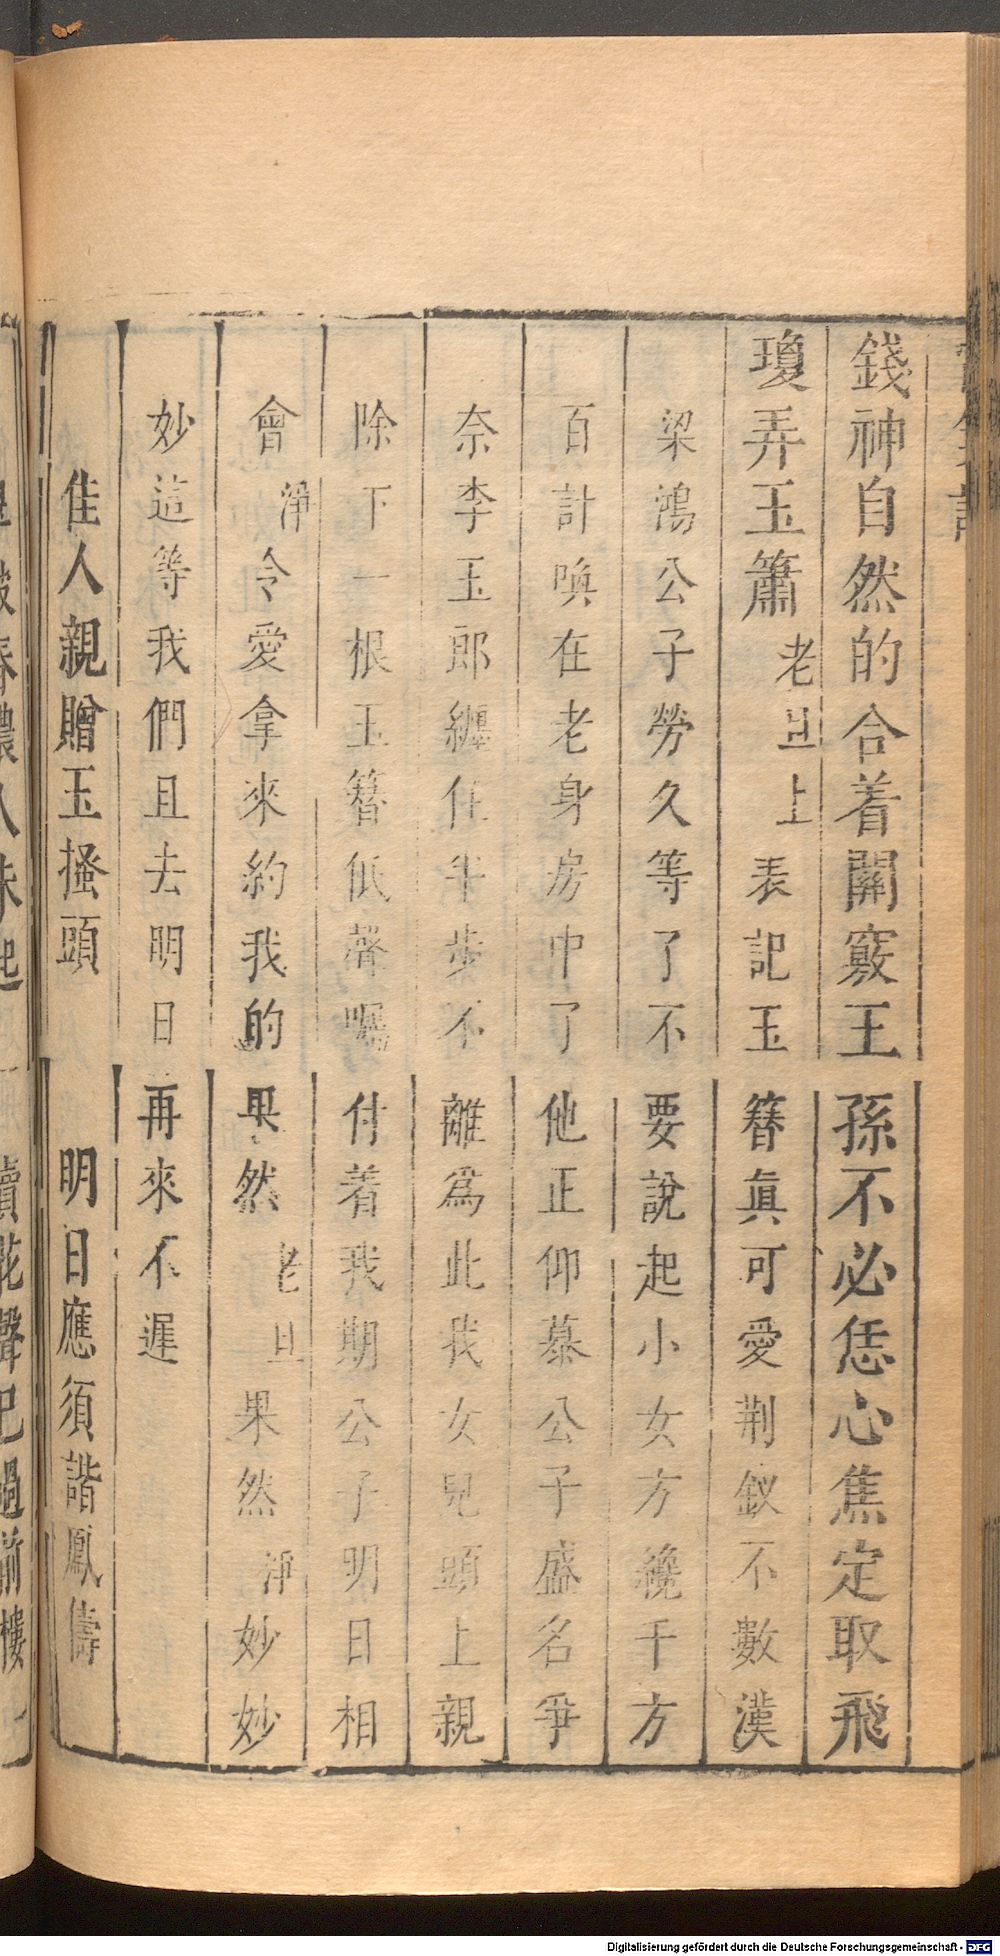 錢神自然的合着關竅王孫不必恁心焦定取飛
瓊弄玉簫老旦上表記玉簪眞可愛荆釵不數漢
梁鴻公子勞久等了不要說起小女方纔千方
百計喚在老身房中了他正仰慕公子盛名爭
奈李玉郎纏住半步不離爲此我女兒頭上親
除下一根玉簪低聲囑付着我期公子明日相
會淨令愛拿來約我的果然老旦果然淨妙妙
妙這等我們且去明日再來不遲
佳人親贈玉搔頭 明日應須諧鳳儔
Digitalisierung gefördert durch die Deutsche Forschungsgemeinschaft - DFG